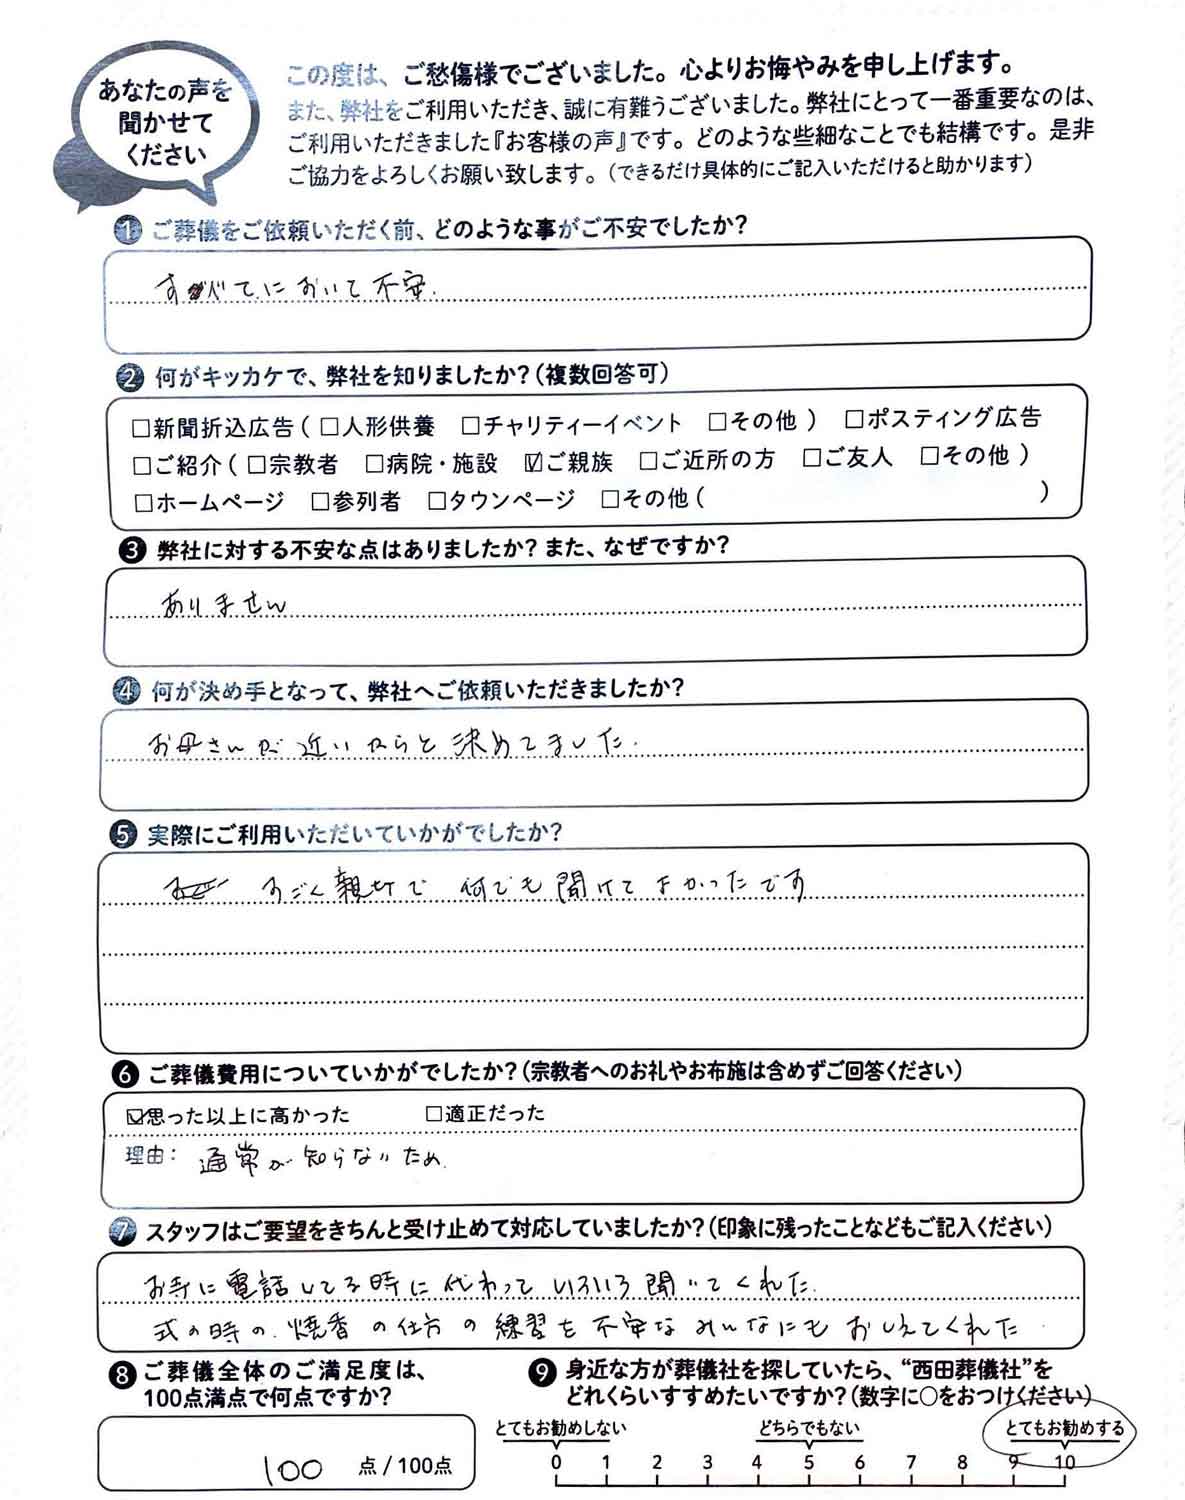 あなたの声を
聞かせて
ください
この度は、ご愁傷様でございました。心よりお悔やみを申し上げます。
また、弊社をご利用いただき、誠に有難うございました。弊社にとって一番重要なのは、
ご利用いただきました『お客様の声』です。どのような些細なことでも結構です。是非
ご協力をよろしくお願い致します。（できるだけ具体的にご記入いただけると助かります）
❶ ご葬儀をご依頼いただく前、どのような事がご不安でしたか？
すべてにおいて不安.
❷ 何がキッカケで、弊社を知りましたか？（複数回答可）
□新聞折込広告（ □人形供養 □チャリティーイベント □その他 ） □ポスティング広告
□ご紹介（ □宗教者 □病院・施設 ☑ご親族 □ご近所の方 □ご友人 □その他 ）
□ホームページ □参列者 □タウンページ □その他（ ）
❸ 弊社に対する不安な点はありましたか？また、なぜですか？
ありません
❹ 何が決め手となって、弊社へご依頼いただきましたか？
お母さんが近いからと決めてました.
❺ 実際にご利用いただいていかがでしたか？
すごく親切で 何でも聞けてよかったです
❻ ご葬儀費用についていかがでしたか？（宗教者へのお礼やお布施は含めずご回答ください）
☑思った以上に高かった □適正だった
理由： 通常が知らないため.
❼ スタッフはご要望をきちんと受け止めて対応していましたか？（印象に残ったことなどもご記入ください）
お寺に電話してる時に代わっていろいろ聞いてくれた.
式の時の.焼香の仕方の練習を不安なみんなにもおしえてくれた.
❽ ご葬儀全体のご満足度は、
100点満点で何点ですか？
100 点 / 100点
❾ 身近な方が葬儀社を探していたら、“西田葬儀社”を
どれくらいすすめたいですか？（数字に○をおつけください）
とてもお勧めしない どちらでもない とてもお勧めする
0 1 2 3 4 5 6 7 8 9 10